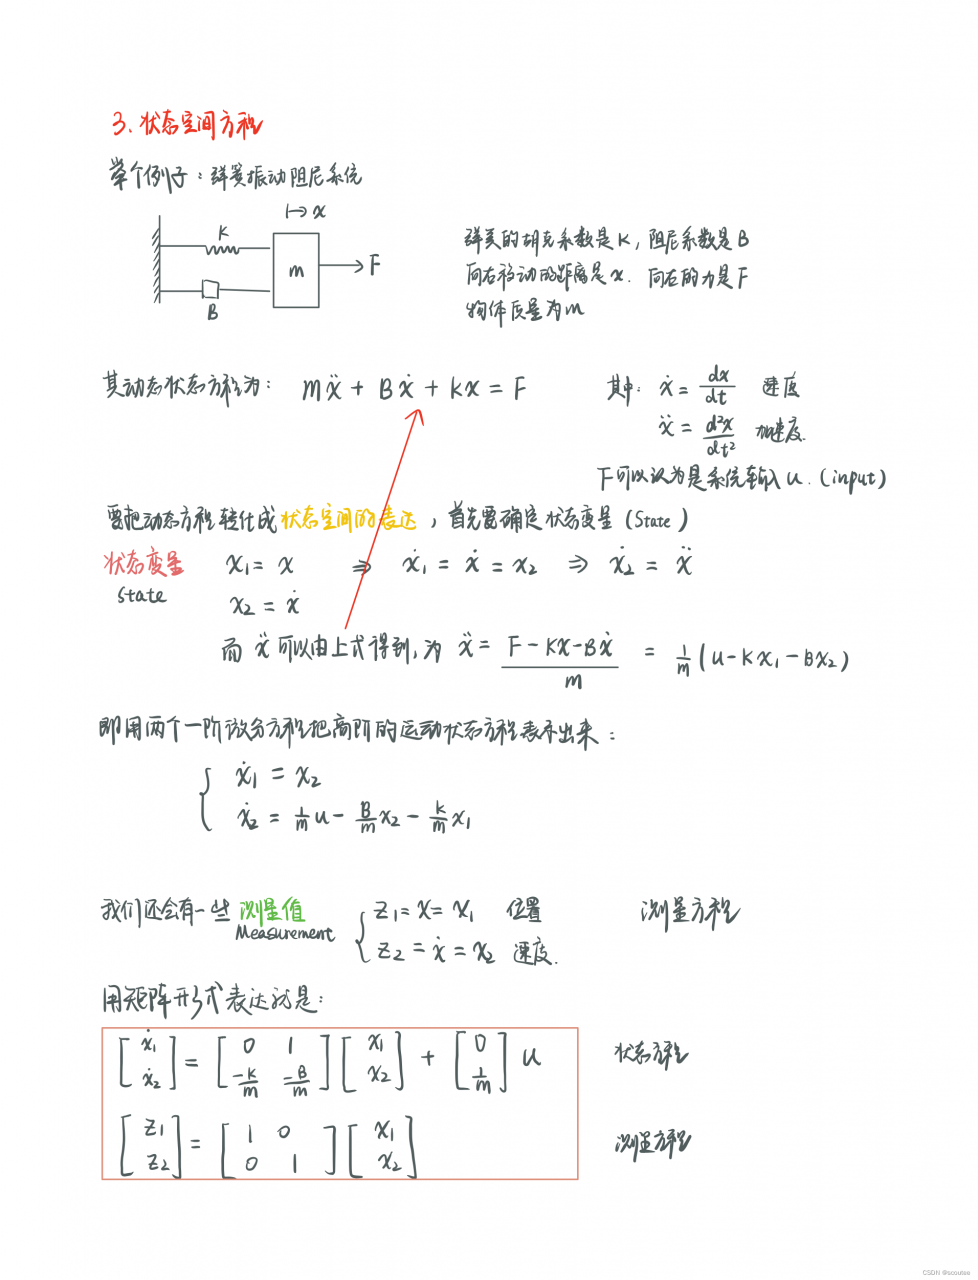 3. 状态空间方程
举个例子：弹簧振动阻尼系统
↦ x
K
m
F
B
弹簧的胡克系数是K，阻尼系数是B
向右移动的距离是x. 向右的力是F
物体质量为m
其动态状态方程为: mẍ + Bẋ + Kx = F
其中: ẋ = dx/dt 速度
ẍ = d²x/dt² 加速度.
F可以认为是系统输入u. (input)
要把动态方程转化成状态空间的表达，首先要确定状态变量 (State)
状态变量 x₁ = x ⇒ ẋ₁ = ẋ = x₂ ⇒ ẋ₂ = ẍ
State x₂ = ẋ
而 ẍ 可以由上式得到，为 ẍ = (F - Kx - Bẋ)/m = 1/m (u - Kx₁ - Bx₂)
即用两个一阶微分方程把高阶的运动状态方程表示出来：
{ ẋ₁ = x₂
ẋ₂ = 1/m u - B/m x₂ - K/m x₁
我们还会有一些 测量值 { z₁ = x = x₁ 位置 测量方程
Measurement z₂ = ẋ = x₂ 速度.
用矩阵形式表达就是:
[ẋ₁; ẋ₂] = [0 1; -K/m -B/m] [x₁; x₂] + [0; 1/m] u 状态方程
[z₁; z₂] = [1 0; 0 1] [x₁; x₂] 测量方程